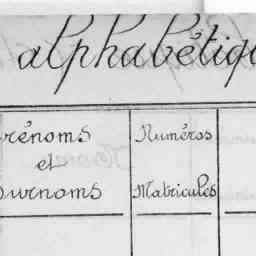 alphabétiqu
rénoms
et
surnoms
Numéros
Matricules